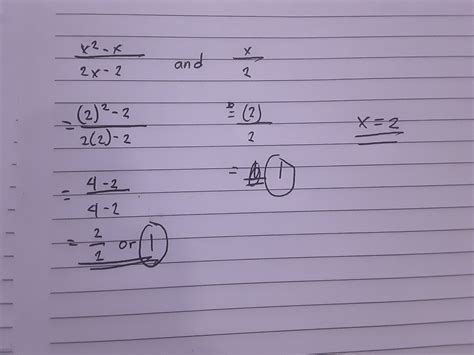 x² - x / 2x - 2 and x / 2
= (2)² - 2 / 2(2) - 2 = (2) / 2 x = 2
= 4 - 2 / 4 - 2 = 1
= 2 / 2 or 1